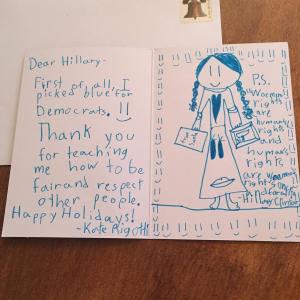 Dear Hillary-
First of all, I
picked blue for
Democrats.
Thank you
for teaching
me how to be
fair and respect
other people.
Happy Holidays!
-Kate Rigoth
P.S.
Woeman
rights
are
human
rights
and
human
rights
are woeman
rights once
and for all
-Hillary Clinton